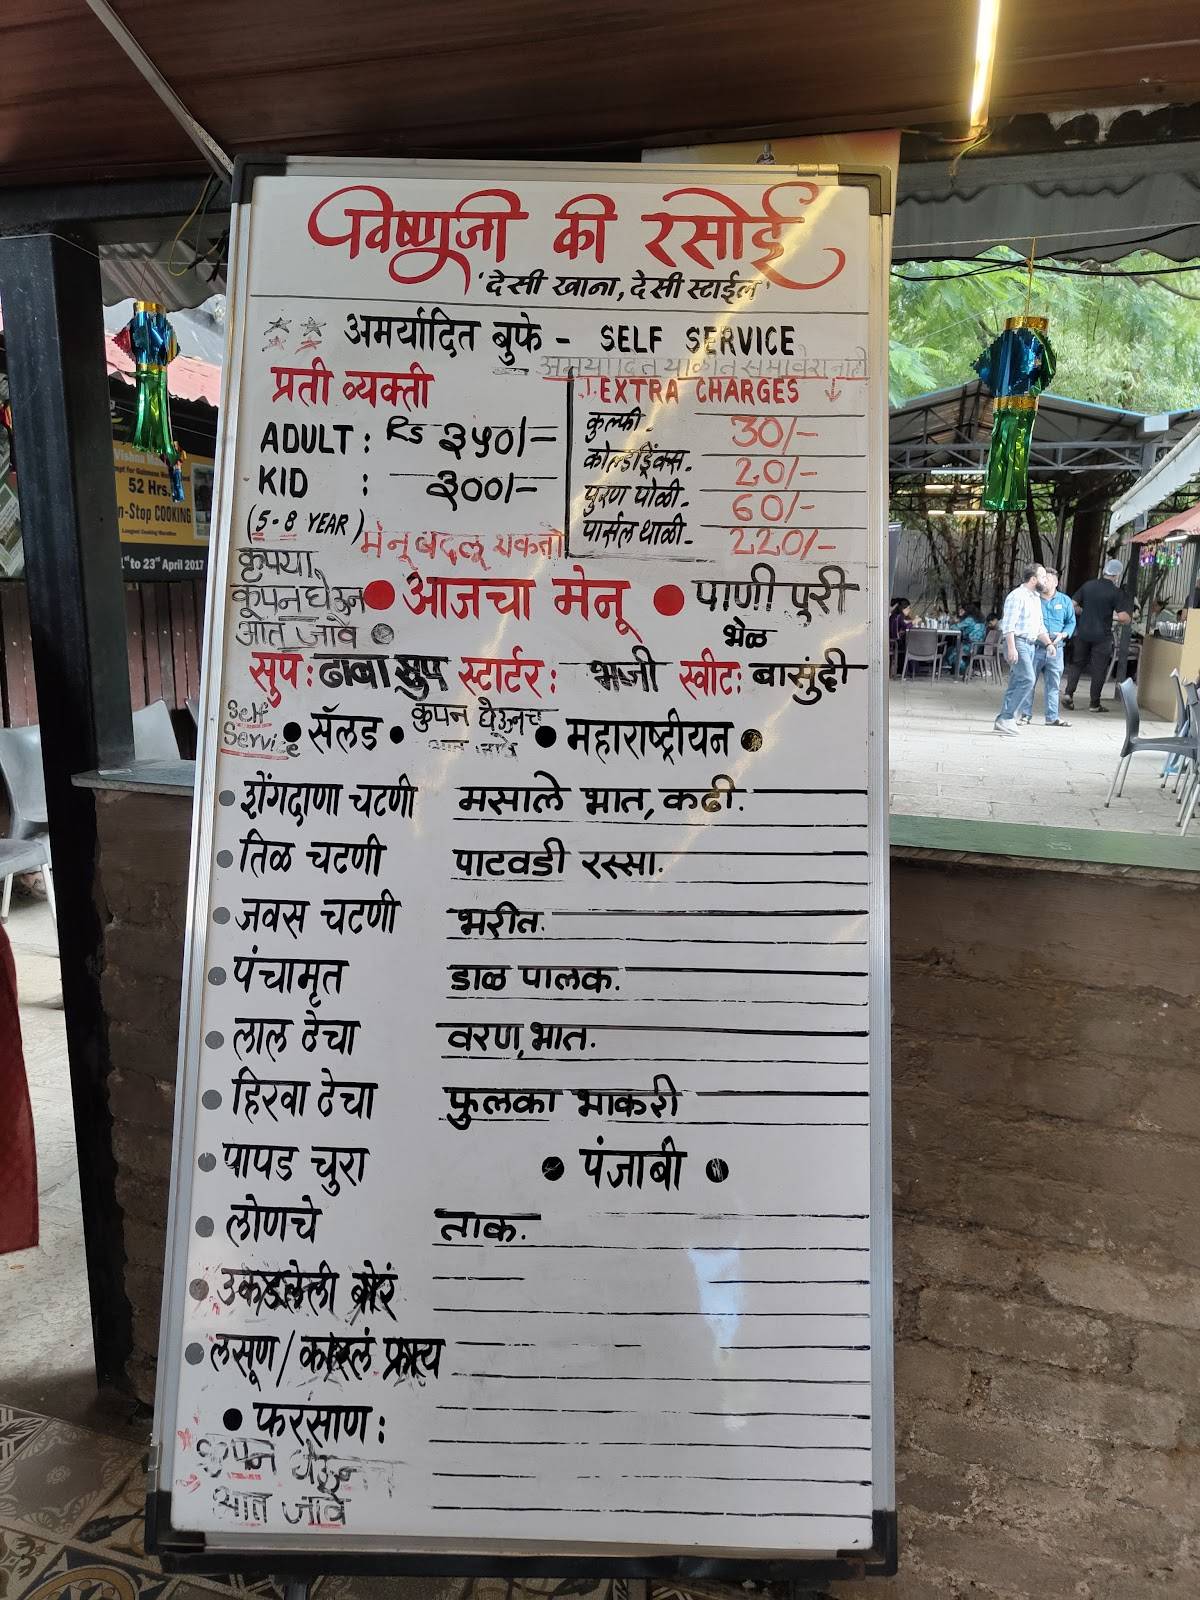 विष्णूजी की रसोई
'देसी खाना, देसी स्टाईल'
अमर्यादित बुफे - SELF SERVICE
अमर्यादित यांकीत समावेश नाही
प्रती व्यक्ती
ADULT : Rs ३५०/-
KID : ३००/-
(5-8 YEAR)
EXTRA CHARGES
कुल्फी - 30/-
कोल्डड्रिंक्स - 20/-
पुरण पोळी - 60/-
पार्सल थाळी - 220/-
मेनू बदलू शकतो
कृपया
कूपन घेऊन
आत जावे
आजचा मेनू
पाणी पुरी
भेळ
सुप: ढाबा सुप स्टार्टर: भजी स्वीट: बासुंदी
Self
Service
• सॅलड •
कुपन घेऊनच
आत जावे
• महाराष्ट्रीयन •
• शेंगदाणा चटणी
• तिळ चटणी
• जवस चटणी
• पंचामृत
• लाल ठेचा
• हिरवा ठेचा
• पापड चुरा
• लोणचे
• उकडलेली बोरं
• लसूण/कारलं फ्राय
• फरसाण:
कुपन घेऊनच
आत जावे
मसाले भात, कढी.
पाटवडी रस्सा.
भरीत.
डाळ पालक.
वरण, भात.
फुलका भाकरी
• पंजाबी •
ताक.
Vishnu
52 Hrs.
n-Stop COOKING
to 23rd April 2017